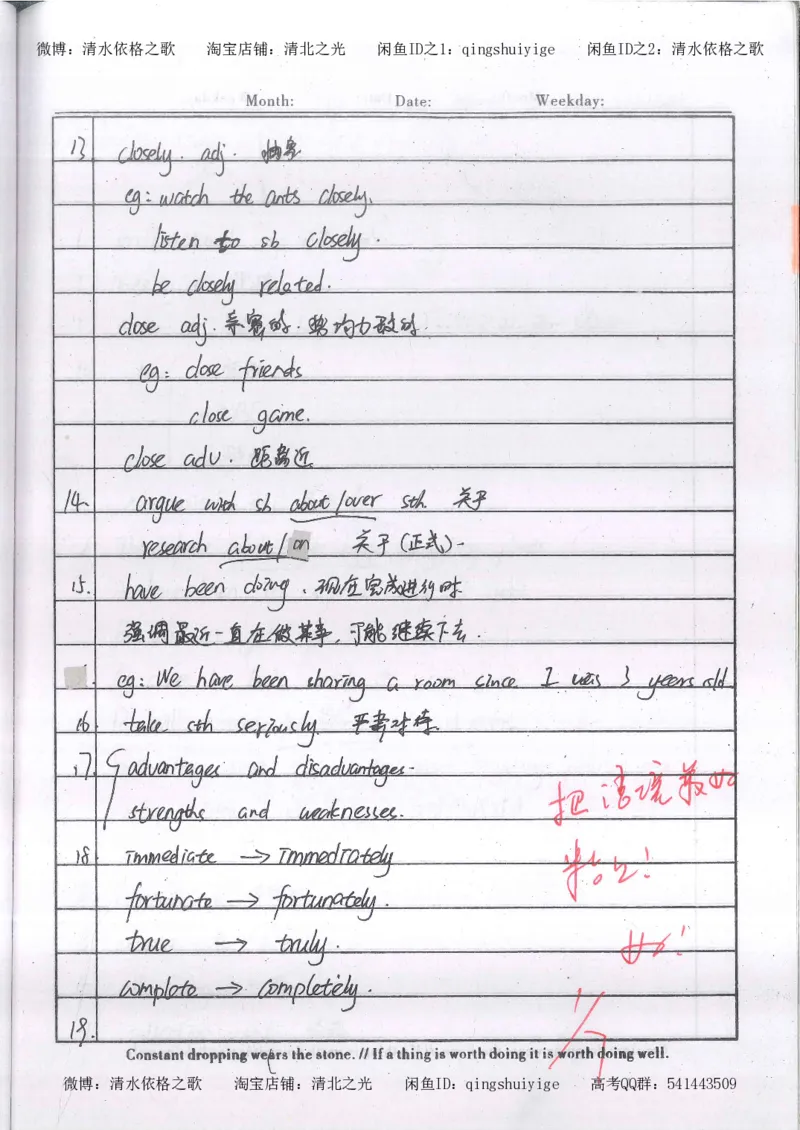 微博：清水依格之歌 淘宝店铺：清北之光 闲鱼ID之1：qingshuiyige 闲鱼ID之2：清水依格之歌
Month: Date: Weekday:
13 closely. adj.
eg: watch the ants closely.
listen to sb closely.
be closely related.
close adj. 亲密的. 势均力敌的.
eg: close friends
close game.
close adv. 距离近
14. argue with sb about/over sth. 关于
research about/on 关于(正式).
15. have been doing. 现在完成进行时.
强调最近一直在做某事, 可能继续下去.
eg: We have been sharing a room since I was 3 years old
16. take sth seriously. 严肃对待.
17. advantages and disadvantages.
strengths and weaknesses.
18. immediate → immediately
fortunate → fortunately.
true → truly.
complete → completely.
19.
把
上!
1/7
Constant dropping wears the stone. // If a thing is worth doing it is worth doing well.
微博：清水依格之歌 淘宝店铺：清北之光 闲鱼ID：qingshuiyige 高考QQ群：541443509